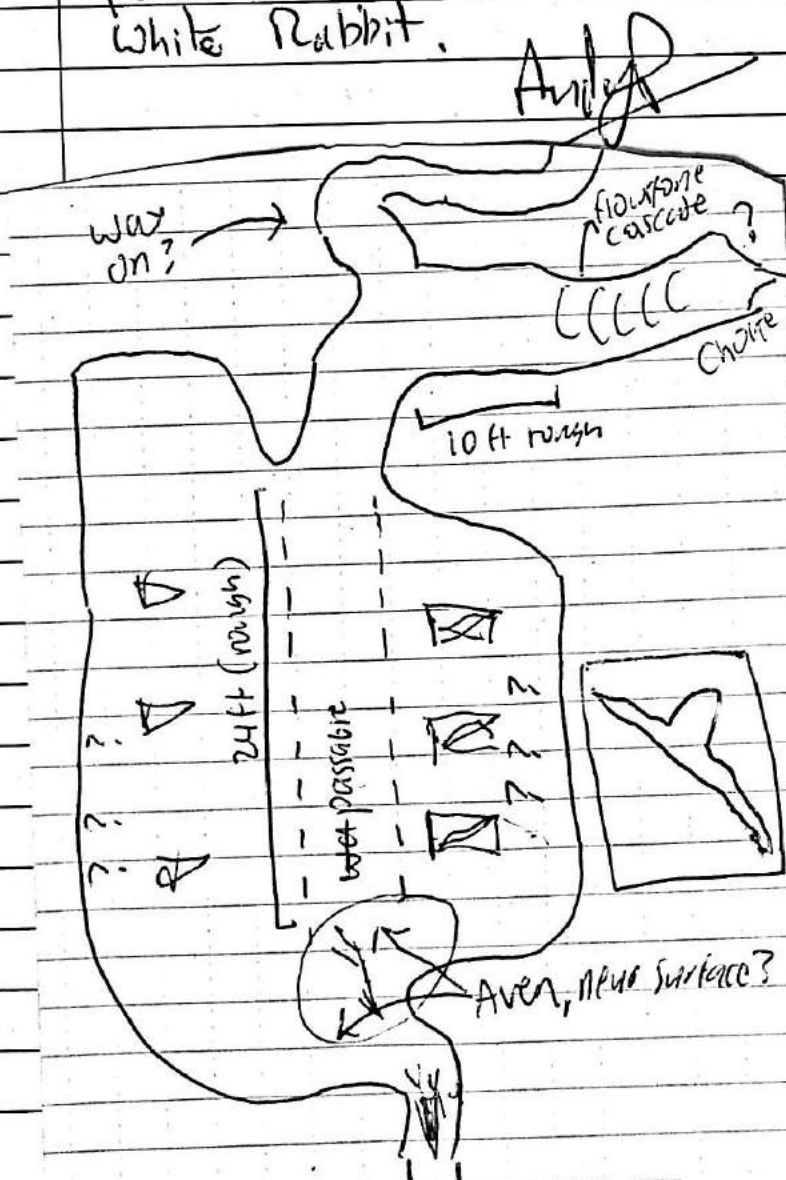 White Rabbit.
Andy
way
on?
flowstone
cascade
?
Choke
10 ft rough
24ft (rough)
passable
?
?
?
?
?
?
Aven, near surface?